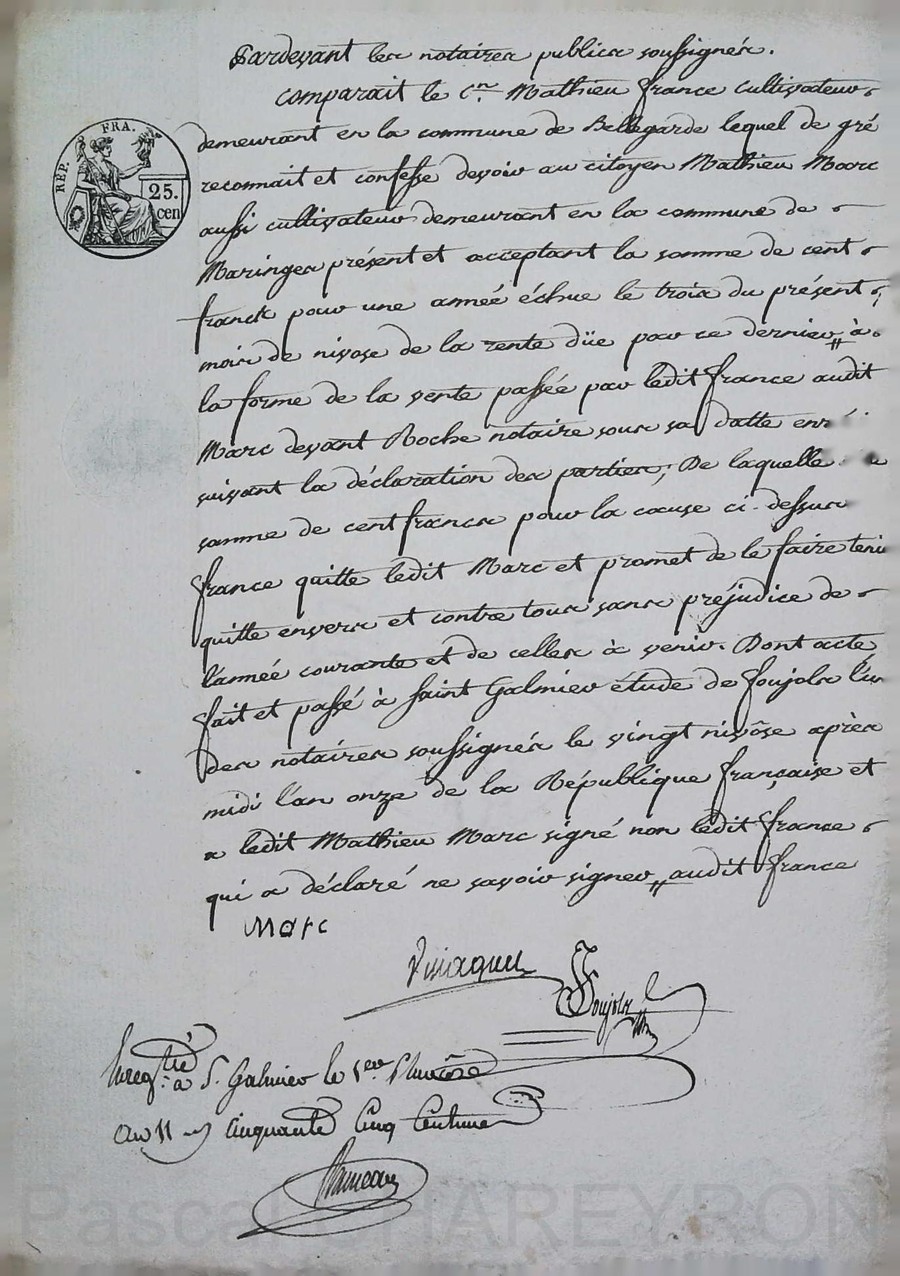 Pardevant les notaires publics soussignés.
comparait le Cn. Mathieu france cultivateur
demeurant en la commune de Bellegarde lequel de gré
reconnait et confesse devoir au citoyen Mathieu Marc
aussi cultivateur demeurant en la commune de
Maringes présent et acceptant la somme de cent
francs pour une année échue le trois du présent
mois de nivose de la rente düe par ce dernier " à
la forme de la vente passée par ledit france audit
Marc devant Roche notaire sous sa datte enr
suivant la déclaration des parties; De laquelle
somme de cent francs pour la cause ci-dessus
france quitte ledit Marc et promet de le faire tenir
quitte envers et contre tous sans préjudice de
l'année courante et de celles à venir. Dont acte
fait et passé à saint Galmier étude de Joujols l'un
des notaires soussignés le vingt nivôse après
midi l'an onze de la République française et
a ledit Mathieu Marc signé non ledit france
qui a déclaré ne savoir signer " audit france
Marc
Joujols
Enregtré à S. Galmier le 1er Pluviôse
an 11 cinquante Cinq Centimes
REP. FRA.
25.
cen
Pascal CHAREYRON